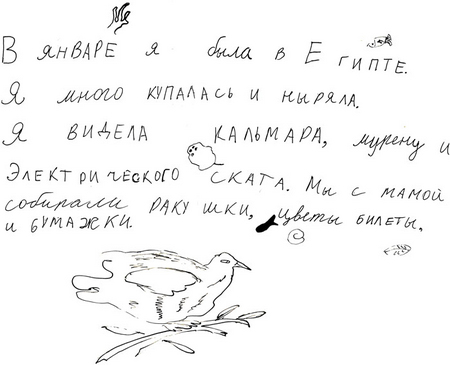 В ЯНВАРЕ я была в ЕГИПТЕ.
Я много КУПАЛАСЬ И НЫРЯЛА.
Я ВИДЕЛА КАЛЬМАРА, мурену и
ЭЛЕКТРИЧЕСКОГО СКАТА. Мы с МАМОЙ
собирали РАКУШКИ, цветы билеты,
и БУМАЖКИ.